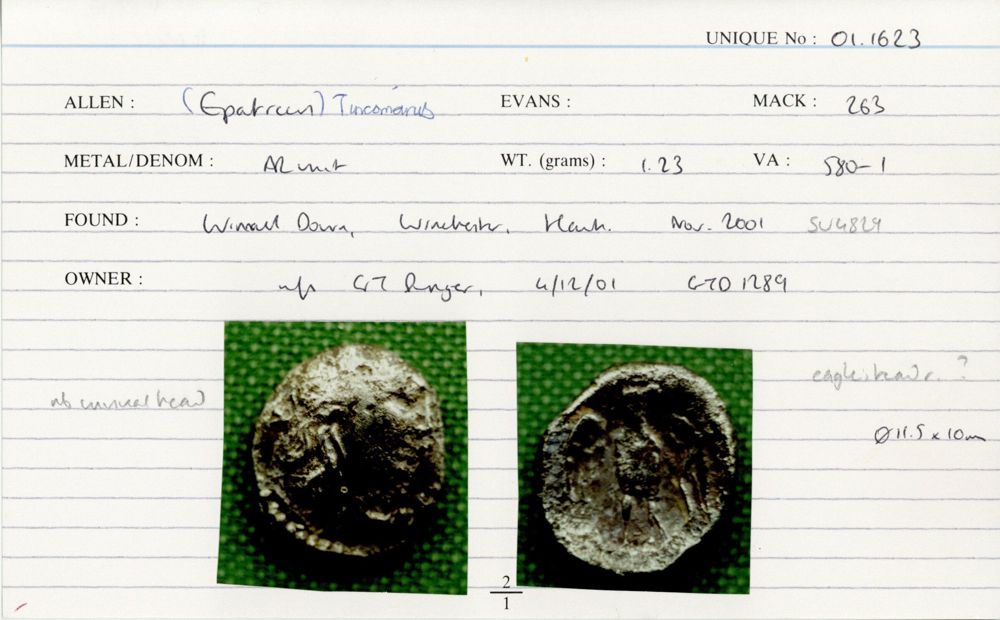 UNIQUE No : 01.1623
ALLEN : (Epaticcus) Tincomarus EVANS : MACK : 263
METAL/DENOM : AR unit WT. (grams) : 1.23 VA : 580-1
FOUND : Winnall Down, Winchester, Hants. Nov. 2001 SU4829
OWNER : CTD 1289 4/12/01
eagle, head r. ?
nb unusual head
Ø 11.5 x 10mm
2
1